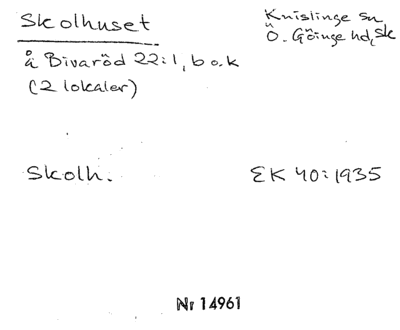 Skolhuset
Knislinge sn
Ö. Göinge hd, Sk
å Bivaröd 22:1, b o. k
(2 lokaler)
Skolh.
EK 40:1935
Nr 14961